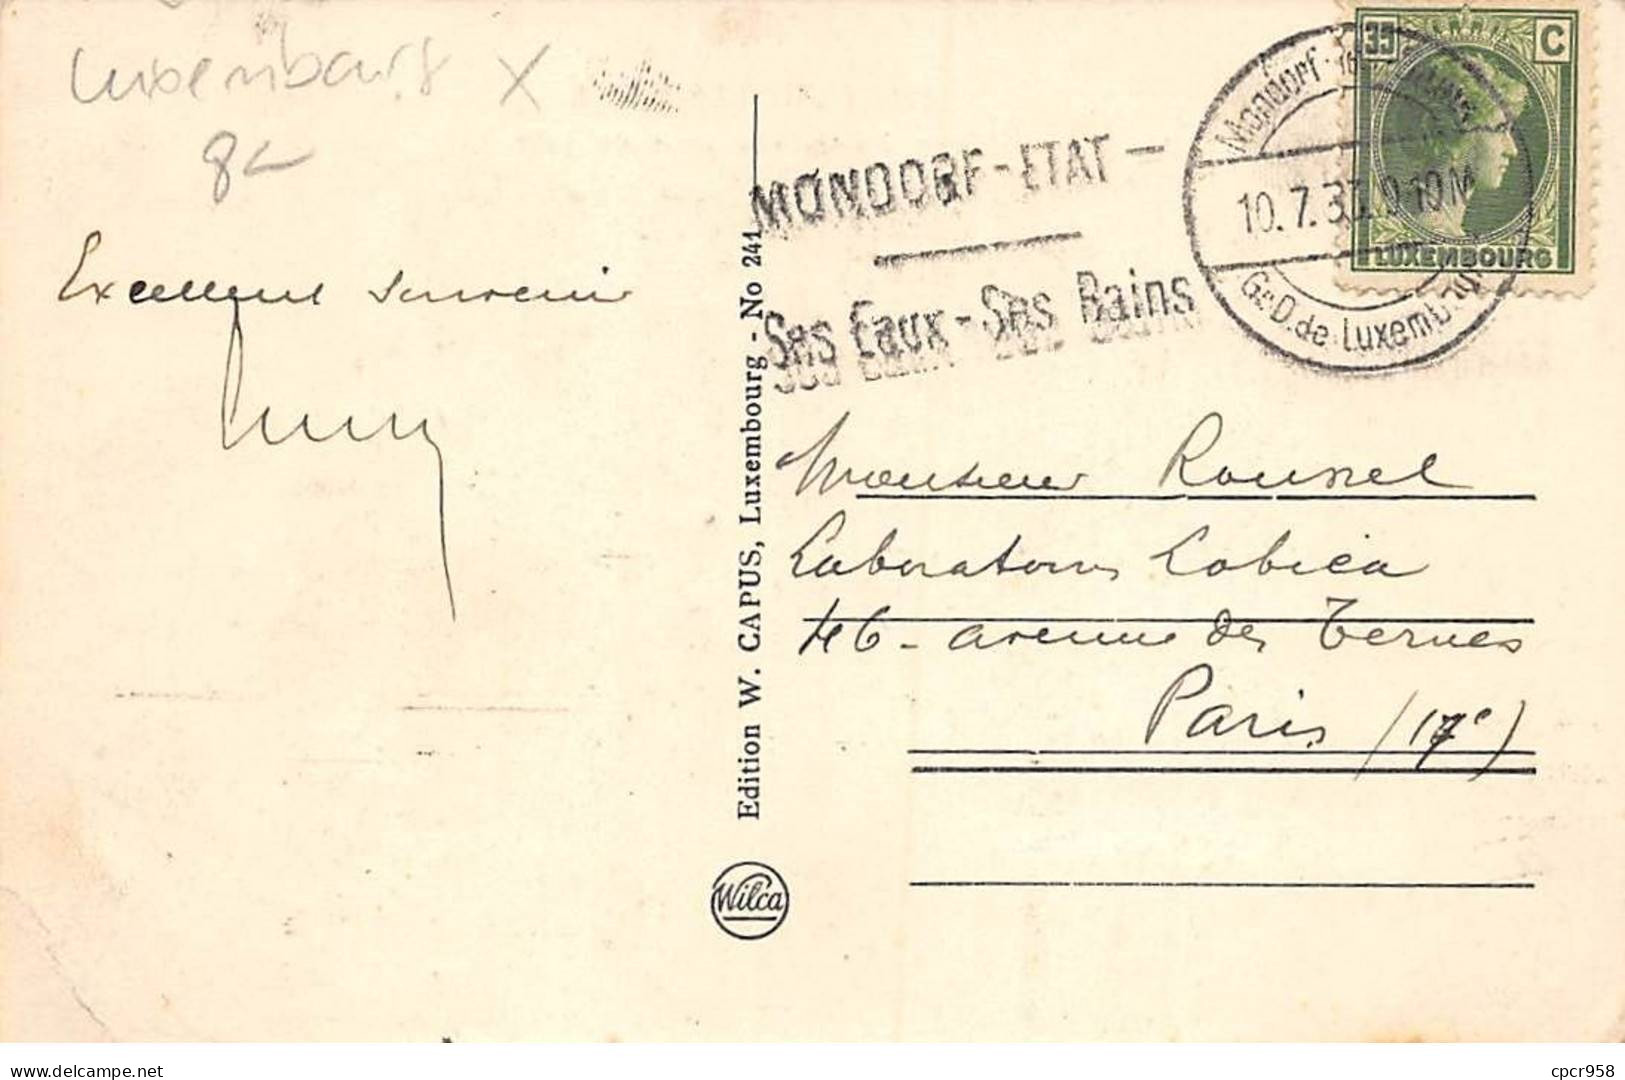 Luxembourg X
8
Excellent souvenir
Edition W. CAPUS, Luxembourg - No 241
Wilca
MONDORF-ETAT -
Ses Eaux - Ses Bains
Mondorf
10.7.33. 9-10M
Gr.D.de Luxembourg
35 C
LUXEMBOURG
Monsieur Roussel
Laboratoires Lobica
46 - avenue des Ternes
Paris (17e)
Delcampe.net
cpcr958